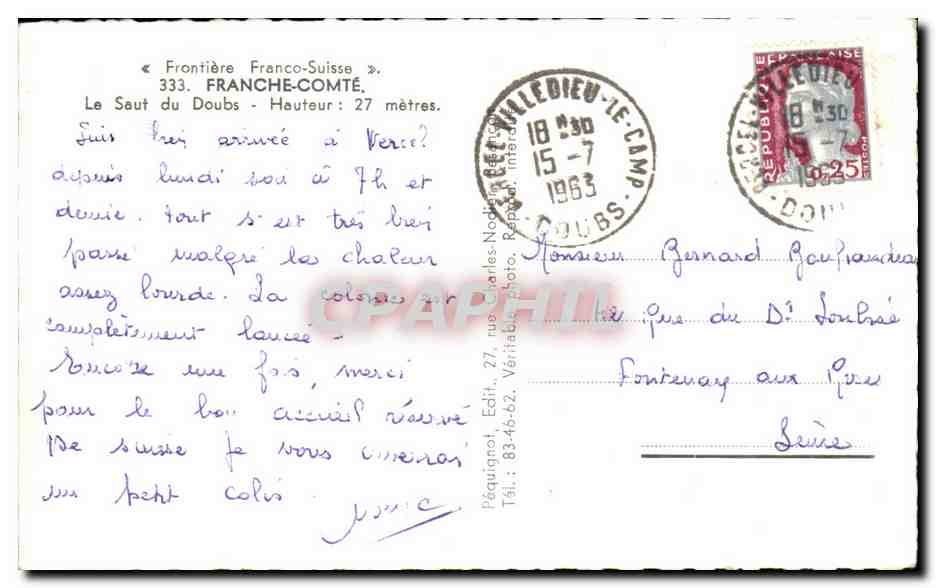 « Frontière Franco-Suisse ».
333. FRANCHE-COMTÉ.
Le Saut du Doubs - Hauteur : 27 mètres.
Suis bien arrivée à Vercel
depuis lundi soir à 7h et
demie. Tout s'est très bien
passé malgré la chaleur
assez lourde. La colonie est
complètement lancée -
Encore une fois, merci
pour le bon accueil réservé
De suisse je vous enverrai
un petit colis.
Péquignot, Edit., 27, rue Charles-Nodier, Besançon
Tél. : 83-46-62. Véritable photo. Reprod. interdite
VERCEL-VILLEDIEU-LE-CAMP
18 H 30
15 -7
1963
DOUBS
VERCEL-VILLEDIEU
18 H 30
15 -7
1963
DOU
REPUBLIQUE FRANÇAISE
0,25
Monsieur Bernard
Rue du Dr
Fontenay aux Roses
Seine
CPAPHIL